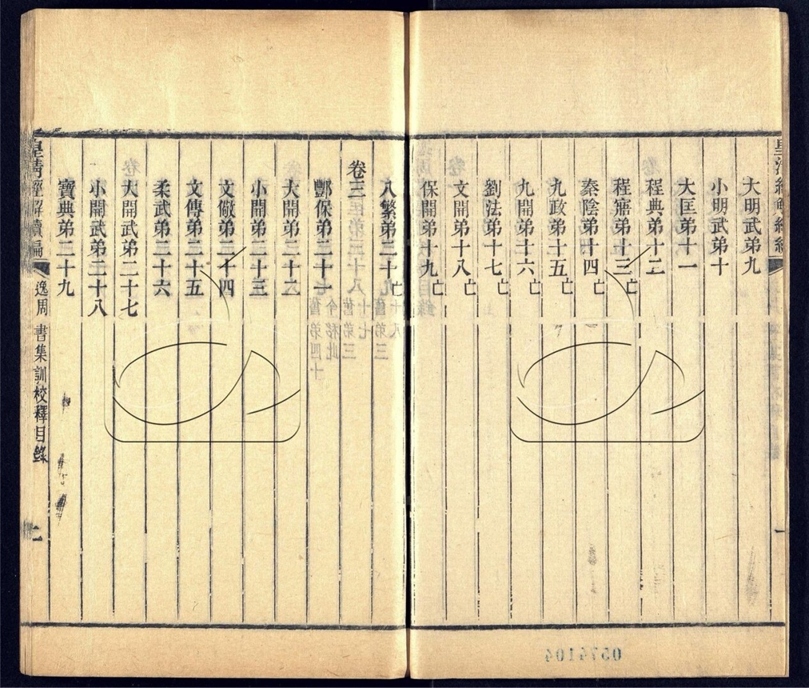 大明武弟九
小明武弟十
大匡弟十一
程典弟十二
程寤弟十三亡
秦陰弟十四亡
九政弟十五亡
九開弟十六亡
劉法弟十七亡
文開弟十八亡
保開弟十九亡
八繁弟二十亡
卷三
酆保弟二十一
大開弟二十二
小開弟二十三
文儆弟二十四
文傳弟二十五
柔武弟二十六
大開武弟二十七
小開武弟二十八
寶典弟二十九
皇清經解續編 逸周書集訓校釋目錄 二
0574104